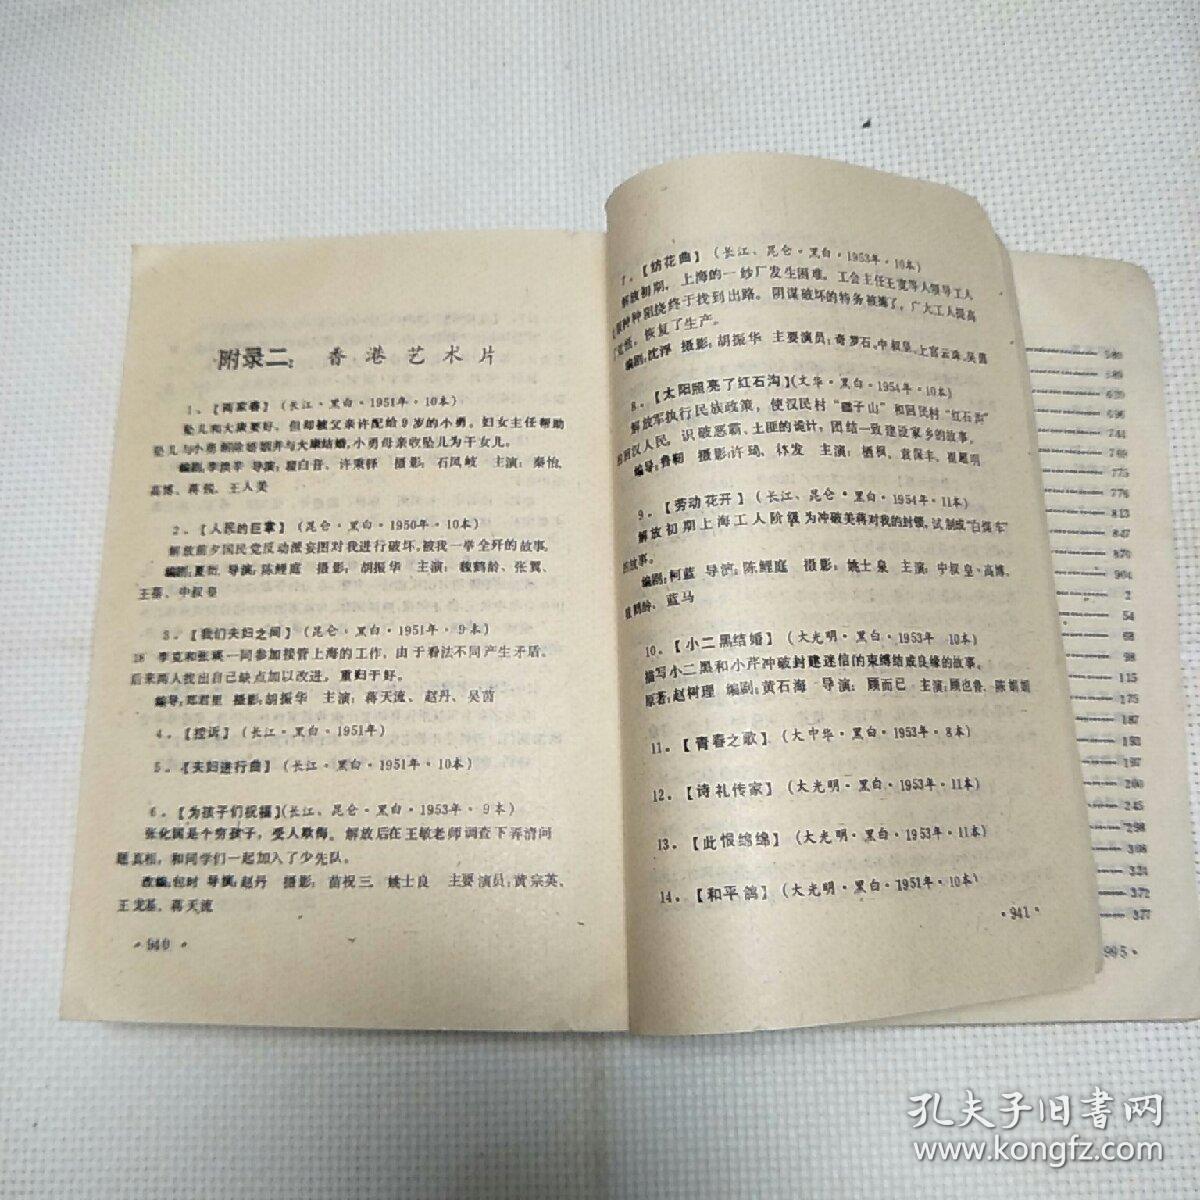 附录二：香港艺术片
1、【两家春】（长江·黑白·1951年·10本）
坠儿和大康要好，但却被父亲许配给9岁的小勇。妇女主任帮助
坠儿与小勇解除婚姻并与大康结婚，小勇母亲收坠儿为干女儿。
编剧：李洪辛 导演：瞿白音、许秉铎 摄影：石凤岐 主演：秦怡、
高博、蒋锐、王人美
2、【人民的巨掌】（昆仑·黑白·1950年·10本）
解放前夕国民党反动派妄图对我进行破坏，被我一举全歼的故事。
编剧：夏衍 导演：陈鲤庭 摄影：胡振华 主演：魏鹤龄、张翼、
王蓓、中叔皇
3、【我们夫妇之间】（昆仑·黑白·1951年·9本）
李克和张瑛一同参加接管上海的工作，由于看法不同产生矛盾，
后来两人找出自己缺点加以改进，重归于好。
编导：郑君里 摄影：胡振华 主演：蒋天流、赵丹、吴茵
4、【控诉】（长江·黑白·1951年）
5、【夫妇进行曲】（长江·黑白·1951年·10本）
6、【为孩子们祝福】（长江、昆仑·黑白·1953年·9本）
张化国是个穷孩子，受人欺侮。解放后在王敏老师调查下弄清问
题真相，和同学们一起加入了少先队。
改编：包时 导演：赵丹 摄影：苗祝三、姚士良 主要演员：黄宗英、
王龙基、蒋天流
·940·
7、【纺花曲】（长江、昆仑·黑白·1953年·10本）
解放初期，上海的一纱厂发生困难。工会主任王宽等人领导工人
种种阻挠终于找到出路。阴谋破坏的特务被逮了，广大工人提高
，恢复了生产。
编剧：沈浮 摄影：胡振华 主要演员：奇罗石、中叔皇、上官云珠、吴茵
8、【太阳照亮了红石沟】（文华·黑白·1954年·10本）
解放军执行民族政策，使汉民村“疆子山”和回民村“红石沟”
回汉人民，识破恶霸、土匪的诡计，团结一致建设家乡的故事。
编导：鲁韧 摄影：许琦、林发 主演：栖枫、袁保丰、崔超明
9、【劳动花开】（长江、昆仑·黑白·1954年·11本）
解放初期上海工人阶级为冲破美蒋对我的封锁，试制成“白煤车”
的故事。
编剧：柯蓝 导演：陈鲤庭 摄影：姚士泉 主演：中叔皇、高博、
鹤龄、蓝马
10、【小二黑结婚】（大光明·黑白·1953年·10本）
描写小二黑和小芹冲破封建迷信的束缚结成良缘的故事。
原著：赵树理 编剧：黄石海 导演：顾而已 主演：顾也鲁、陈娟娟
11、【青春之歌】（大中华·黑白·1953年·8本）
12、【诗礼传家】（大光明·黑白·1953年·11本）
13、【此恨绵绵】（大光明·黑白·1953年·11本）
14、【和平鸽】（大光明·黑白·1951年·10本）
·941·
775
776
813
847
870
904
2
54
68
98
115
187
193
197
200
245
298
308
334
372
377
995·
孔夫子旧书网
www.kongfz.com